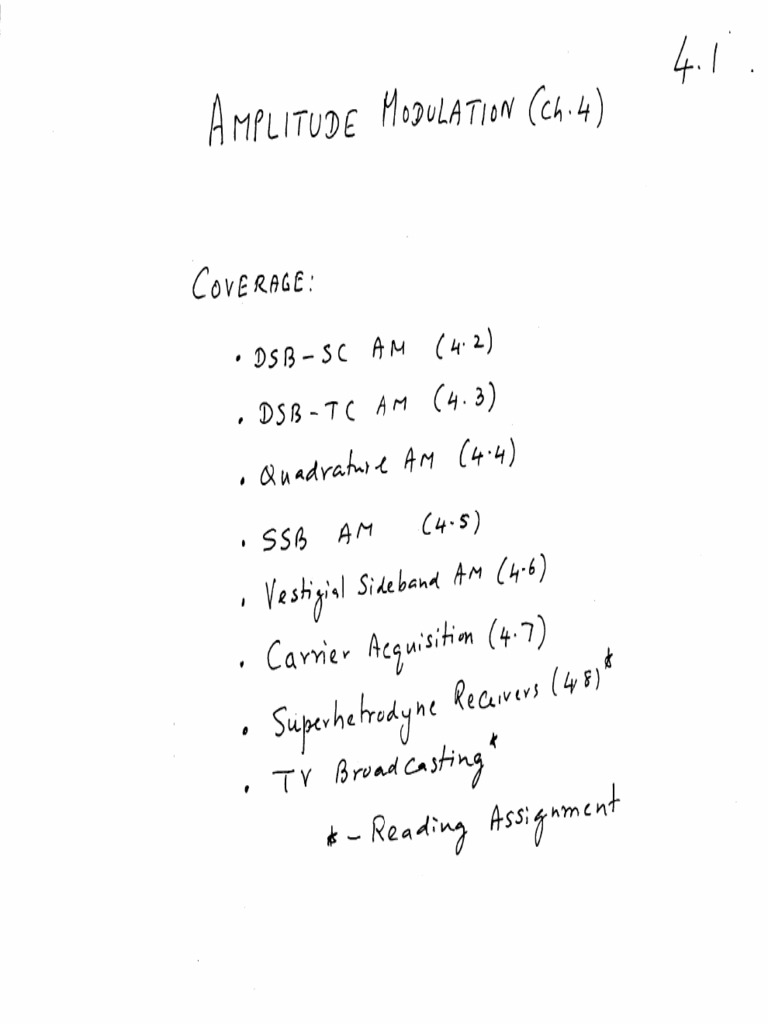 4.1.
AMPLITUDE MODULATION (Ch.4)
COVERAGE:
• DSB-SC AM (4.2)
• DSB-TC AM (4.3)
• Quadrature AM (4.4)
• SSB AM (4.5)
• Vestigial Sideband AM (4.6)
• Carrier Acquisition (4.7)
• Superhetrodyne Receivers (4.8)*
• TV Broadcasting*
* - Reading Assignment